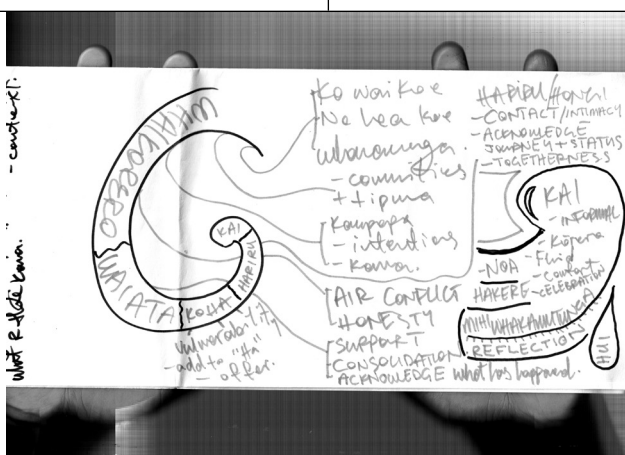 - context.
WHAIKOORERO
WAIATA
KOHA
HARIRU
KAI
vulnerability,
- add to "Ha"
- offer.
Ko wai koe
No hea koe
whanaunga
- communities
+ tipuna
Kaupapa
- intentions
- kawa.
AIR CONFLICT
HONESTY
SUPPORT
CONSOLIDATION
ACKNOWLEDGE what has happened.
HARIRU/HONGI
- CONTACT/INTIMACY
- ACKNOWLEDGE
JOURNEY + STATUS
- TOGETHERNESS
KAI
- INFORMAL
- Korero
- Fluid
- Comfort
- CELEBRATION
- NOA
HAKERE
MIHI WHAKAMUTUNGA
REFLECTION
HUI